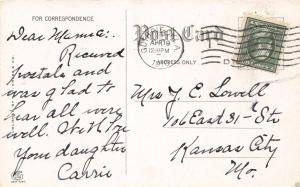 FOR CORRESPONDENCE
Post Card
APR 19
12:30 PM
ADDRESS ONLY
Dear Mama:-
Received
postals and
was glad to
hear all were
well. With love
Your daughter
Carrie
Mrs J. E. Lowell
706 East 31- St
Kansas City
Mo.